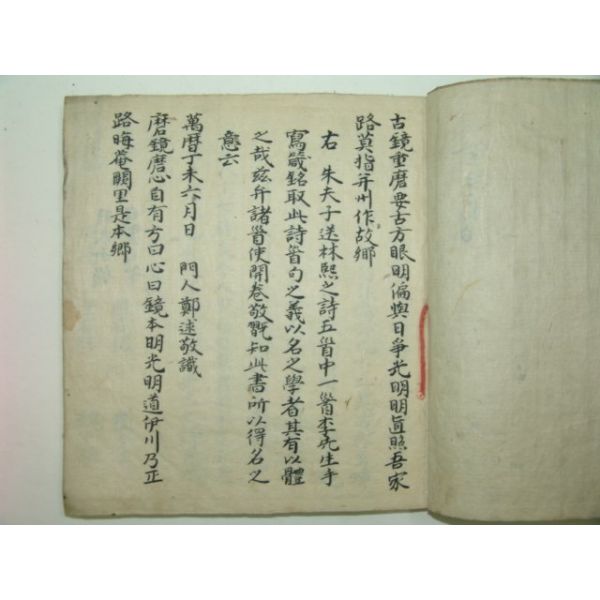 古鏡重磨要古方眼明偏與日爭光明明直照吾家
路莫指幷州作故鄕
右 朱夫子送林熙之詩五首中一首李先生手
寫箴銘取此詩首句之義以名之學者其有以體
之哉玆弁諸首使開卷敬翫知此書所以得名之
意云
萬曆丁未六月日 門人鄭逑敬識
磨鏡磨心自有方曰心曰鏡本明光明道伊川乃正
路晦菴闕里是本鄕